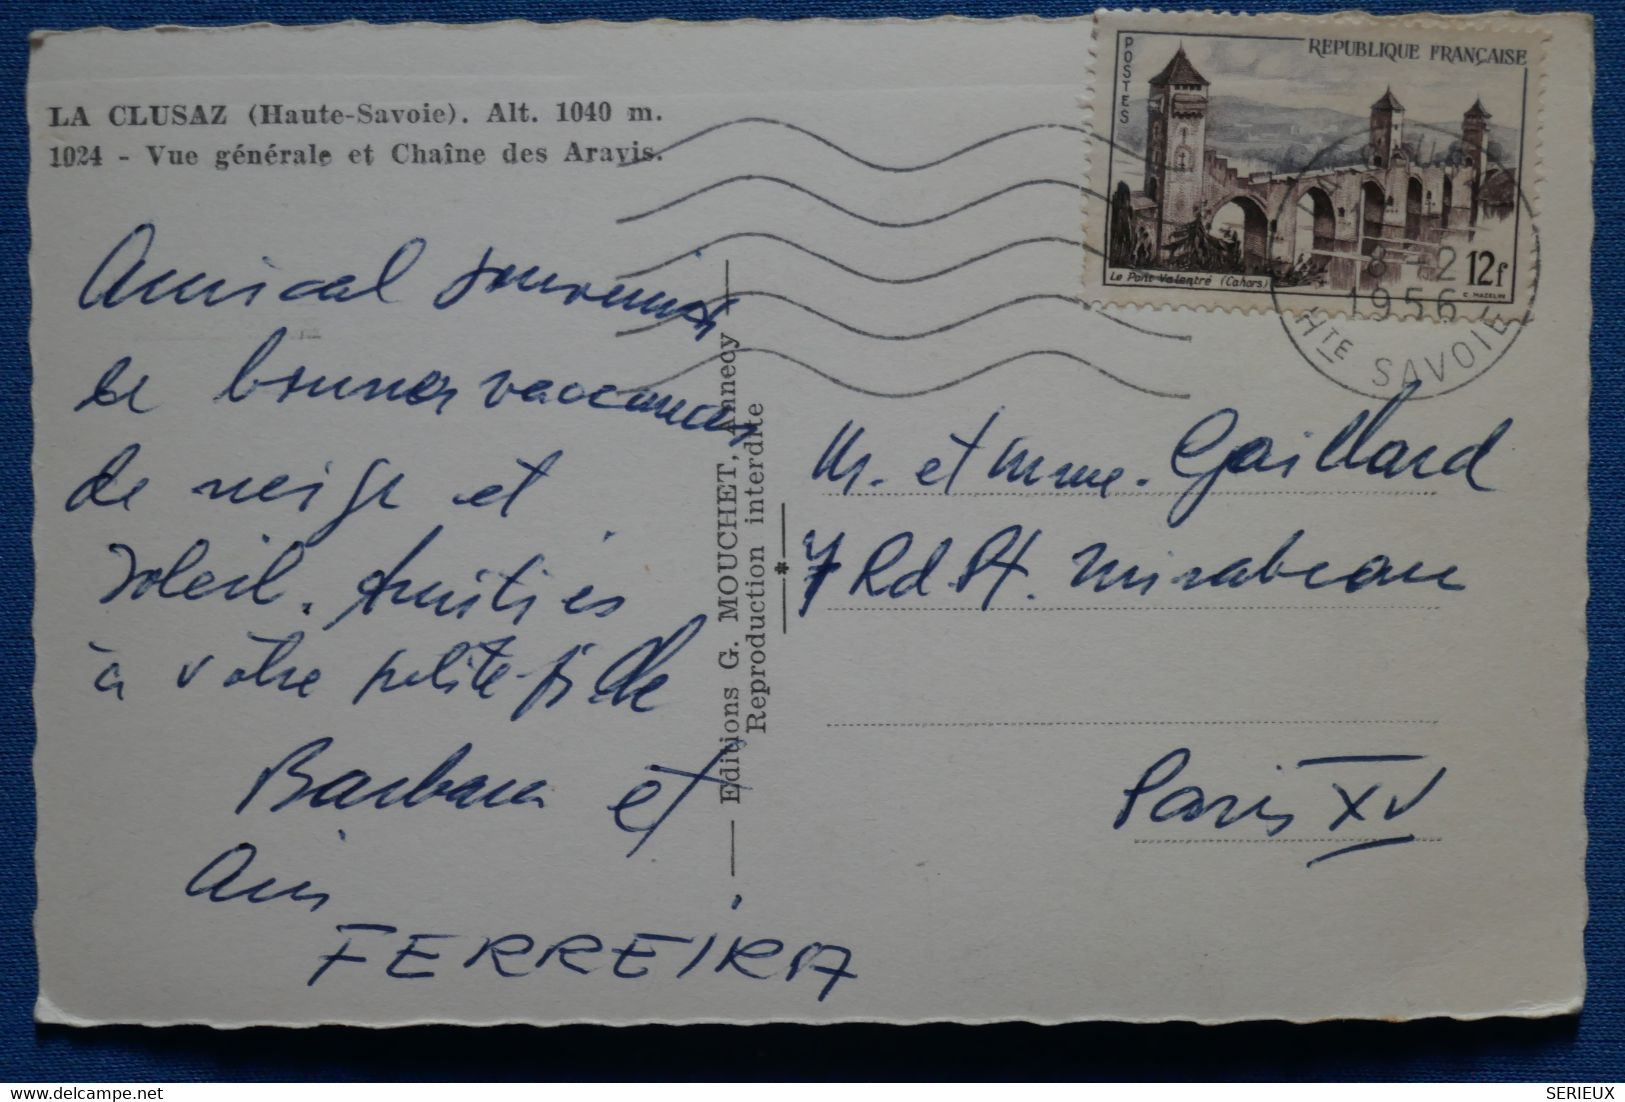 LA CLUSAZ (Haute-Savoie). Alt. 1040 m.
1024 - Vue générale et Chaîne des Aravis.
Amical souvenir
de bonnes vacances
de neige et
soleil. Amitiés
à votre petite-fille
Barbara et
FERREIRA
Editions G. MOUCHET, Annecy
Reproduction interdite
*
POSTES
REPUBLIQUE FRANÇAISE
Le Pont Valentré (Cahors)
12f
C. MAZELIN
8-2
1956
HTE SAVOIE
Mr. et Mme. Gaillard
7 Rd Pt. Mirabeau
Paris XV
delcampe.net
SERIEUX